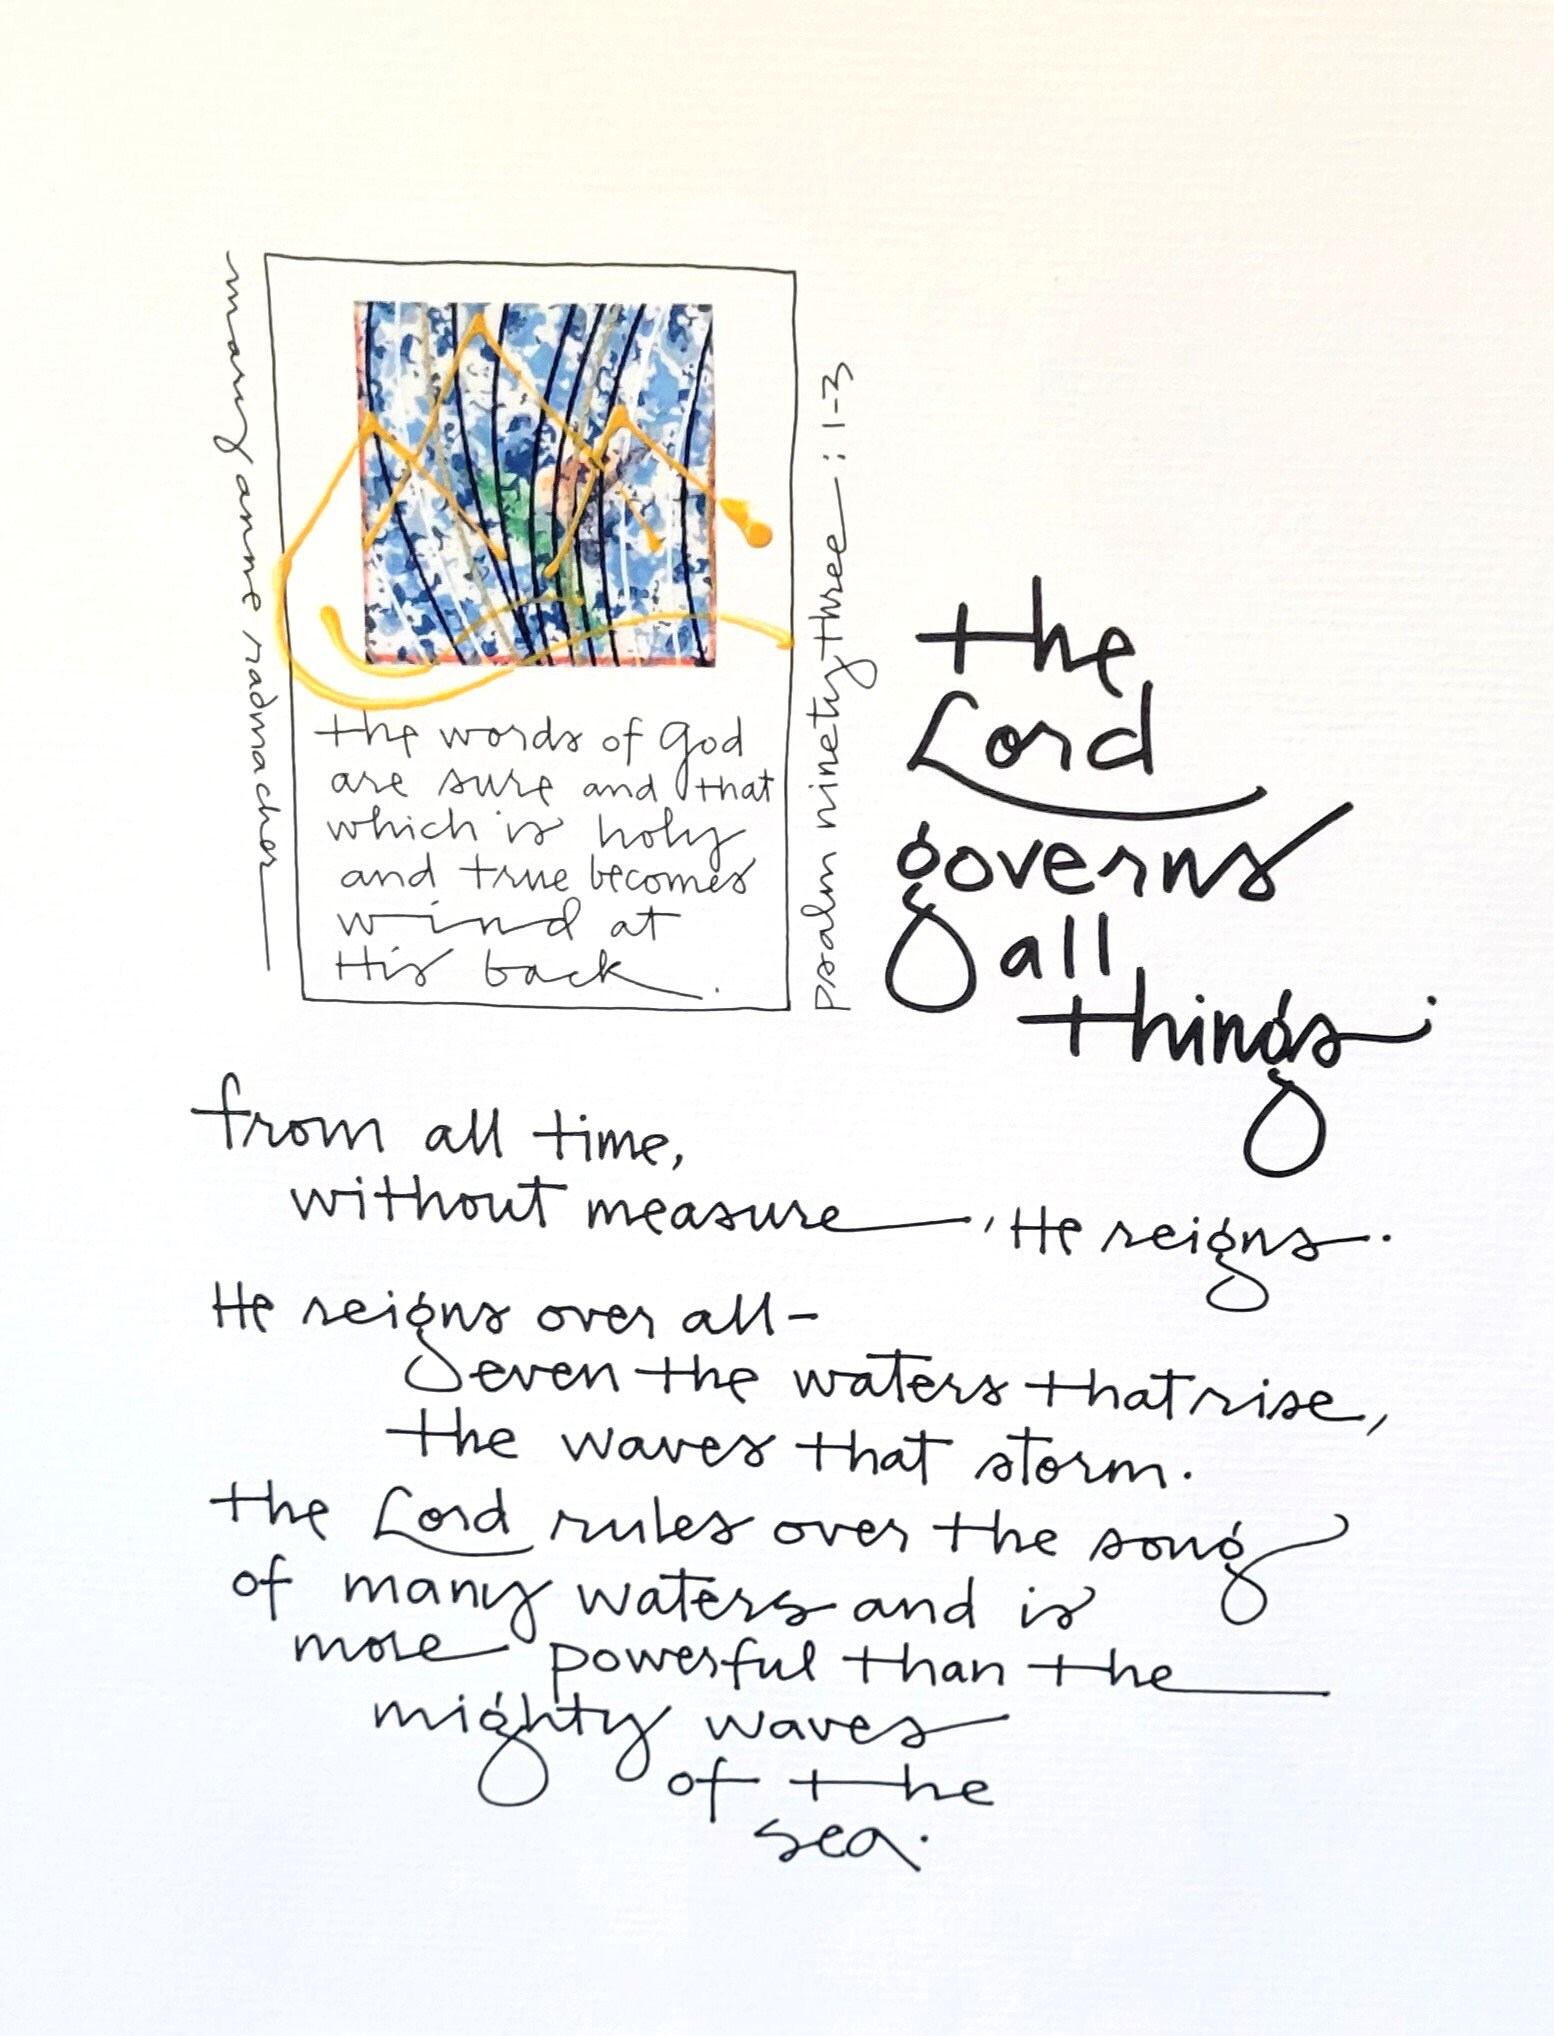 mary anne radmacher
the words of god
are sure and that
which is holy
and true becomes
wind at
His back.
psalm ninety three : 1-3
the
Lord
governs
all
things.
from all time,
without measure, He reigns.
He reigns over all-
even the waters that rise,
the waves that storm.
the Lord rules over the song
of many waters and is
more powerful than the
mighty waves
of the
sea.